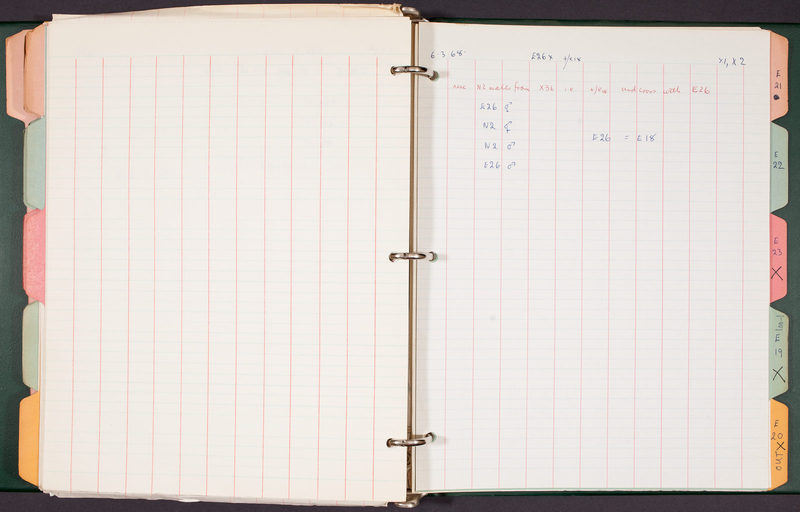 6·3·68· E26 x +/e18 Y1, X2
N2 males from X36 i.e. +/e18 and cross with E26
E26 ♀
N2 ♀
E26 = E18
N2 ♂
E26 ♂
E
21
E
22
E
23
X
E
19
X
E
20
X
OUT